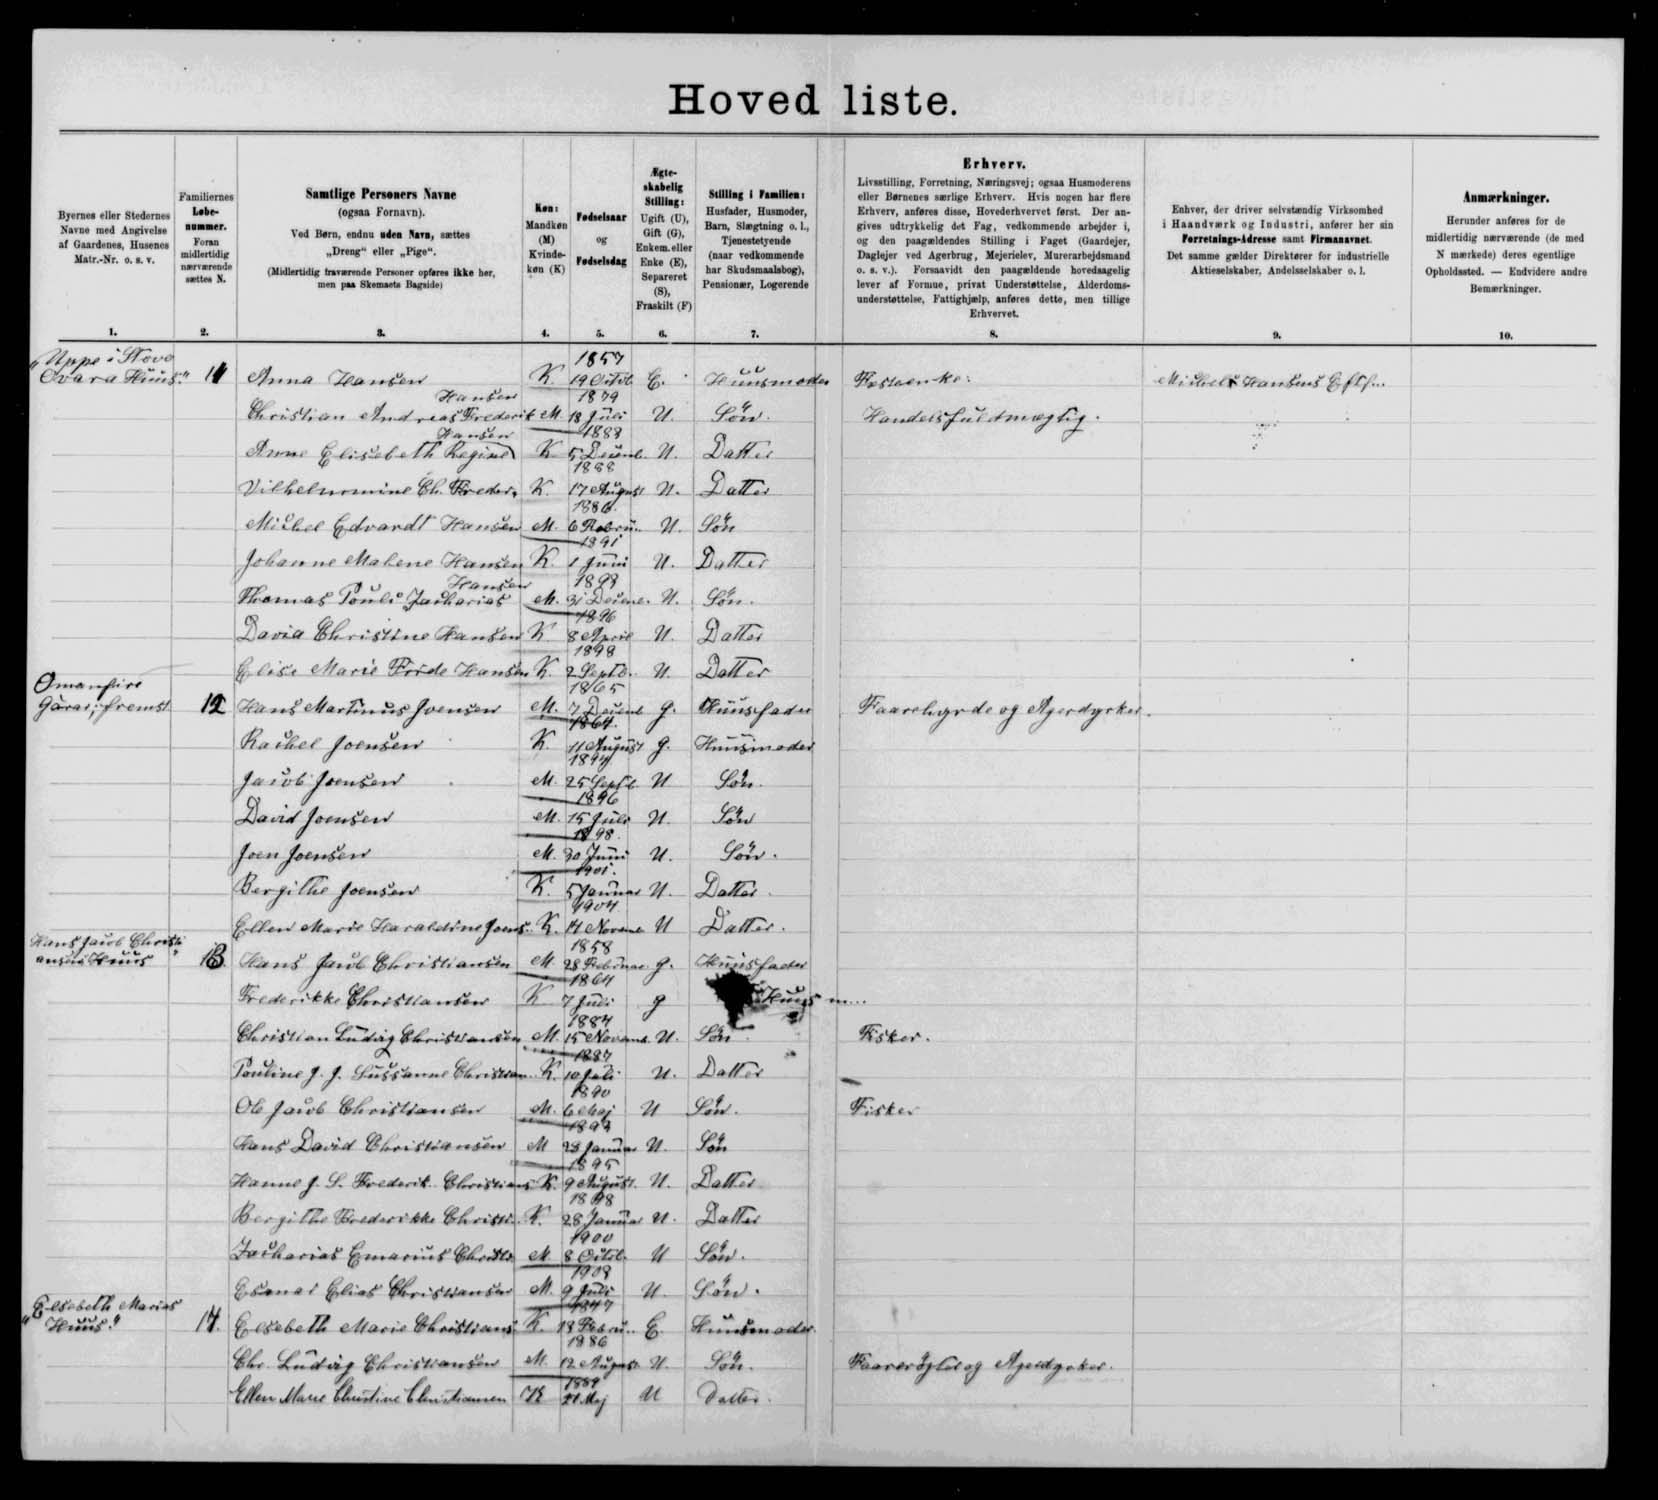 Hoved liste.
Byernes eller Stedernes
Navne med Angivelse
af Gaardenes, Husenes
Matr.-Nr. o. s. v.
Familiernes
Løbe-
nummer.
Foran
midlertidig
nærværende
sættes N.
Samtlige Personers Navne
(ogsaa Fornavn).
Ved Børn, endnu uden Navn, sættes
„Dreng“ eller „Pige“.
(Midlertidig fraværende Personer opføres ikke her,
men paa Skemaets Bagside)
Køn:
Mandkøn
(M)
Kvinde-
køn (K)
Fødselsaar
og
Fødselsdag
Ægte-
skabelig
Stilling:
Ugift (U),
Gift (G),
Enkem. eller
Enke (E),
Separeret
(S),
Fraskilt (F)
Stilling i Familien:
Husfader, Husmoder,
Barn, Slægtning o. l.,
Tjenestetyende
(naar vedkommende
har Skudsmaalsbog),
Pensionær, Logerende
Erhverv.
Livsstilling, Forretning, Næringsvej; ogsaa Husmoderens
eller Børnenes særlige Erhverv. Hvis nogen har flere
Erhverv, anføres disse, Hovederhvervet først. Der an-
gives udtrykkelig det Fag, vedkommende arbejder i,
og den paagældendes Stilling i Faget (Gaardejer,
Daglejer ved Agerbrug, Mejerielev, Murerarbejdsmand
o. s. v.). Forsaavidt den paagældende hovedsagelig
lever af Formue, privat Understøttelse, Alderdoms-
understøttelse, Fattighjælp, anføres dette, men tillige
Erhvervet.
Enhver, der driver selvstændig Virksomhed
i Haandværk og Industri, anfører her sin
Forretnings-Adresse samt Firmanavnet.
Det samme gælder Direktører for industrielle
Aktieselskaber, Andelsselskaber o. l.
Anmærkninger.
Herunder anføres for de
midlertidig nærværende (de med
N mærkede) deres egentlige
Opholdssted. — Endvidere andre
Bemærkninger.
1. 2. 3. 4. 5. 6. 7. 8. 9. 10.
"Uppe i Stove 1857
Huus" 11 Anna Hansen K. 19 Octob. E. Huusmoder Michels Hansens Eftf...
Hansen 1879
Christian Andreas Frederik M. 18 Juli U. Søn. Handelsfuldmægtig.
Hansen 1883
Anne Elisebeth Regine K 5 Decemb. U. Datter
1888
Vilhelmmine Ch. Freder. K. 17 August U. Datter
1886.
Michel Edvardt Hansen M. 6 Febru.. U. Søn
1891
Johanne Malene Hansen K. 1 Juni U. Datter
Hansen 1893
Thomas Pouli Zacharias M. 31 Decemb. U. Søn.
1896
Davia Christine Hansen K. 8 April U. Datter
1898
Elise Marie Hansen K. 2 Septb. U. Datter
1865
fremst. 12 Hans Martinus Joensen M. 7 Decemb G. Huusfader Faarehyrde og Agerdyrker.
1864.
Rachel Joensen K. 11 August G. Huusmoder
1894
Jacob Joensen M. 25 Septb U Søn.
1896
David Joensen M. 15 Juli U. Søn
1898.
Joen Joensen M. 30 Juni U. Søn.
1901.
Bergithe Joensen K. 5 Januar U. Datter.
1904
Ellen Marie Haraldine Joens.. K. 14 Novemb U Datter.
Hans Jacob Christi 1858
ansens Huus" 13. Hans Jacob Christiansen M. 28 Februar G. Huusfader
1864
Frederikke Christiansen K 7 Juli g Huus m...
1884
Christian Ludvig Christiansen M. 15 Novemb. U. Søn. Fisker.
1887
Pouline J. J. Sussanne Christian.. K. 10 Juli U. Datter
1890
Ole Jacob Christiansen M. 6 Maj U Søn. Fisker
Hans David Christiansen M 23 Januar U. Søn
1895
Hanne J. S. Frederik. Christians K. 9 August. U. Datter
1898
Bergithe Frederikke Christi.. K. 28 Januar U. Datter
1900
Zacharias Emarius Christi M 8 Octob. U Søn.
1903
Esanar Elias Christiansen M. 9 Juli U. Søn.
Elsebeth Marias 1847
"Huus." 14. Elsebeth Marie Christians. K. 18 Febru.. E. Huusmoder.
1886
Chr. Ludvig Christiansen M. 12 August U. Søn. Faarerøgter og Agerdyrker.
1889
Ellen Marie Christine Christiansen K 21 Maj U Datter.